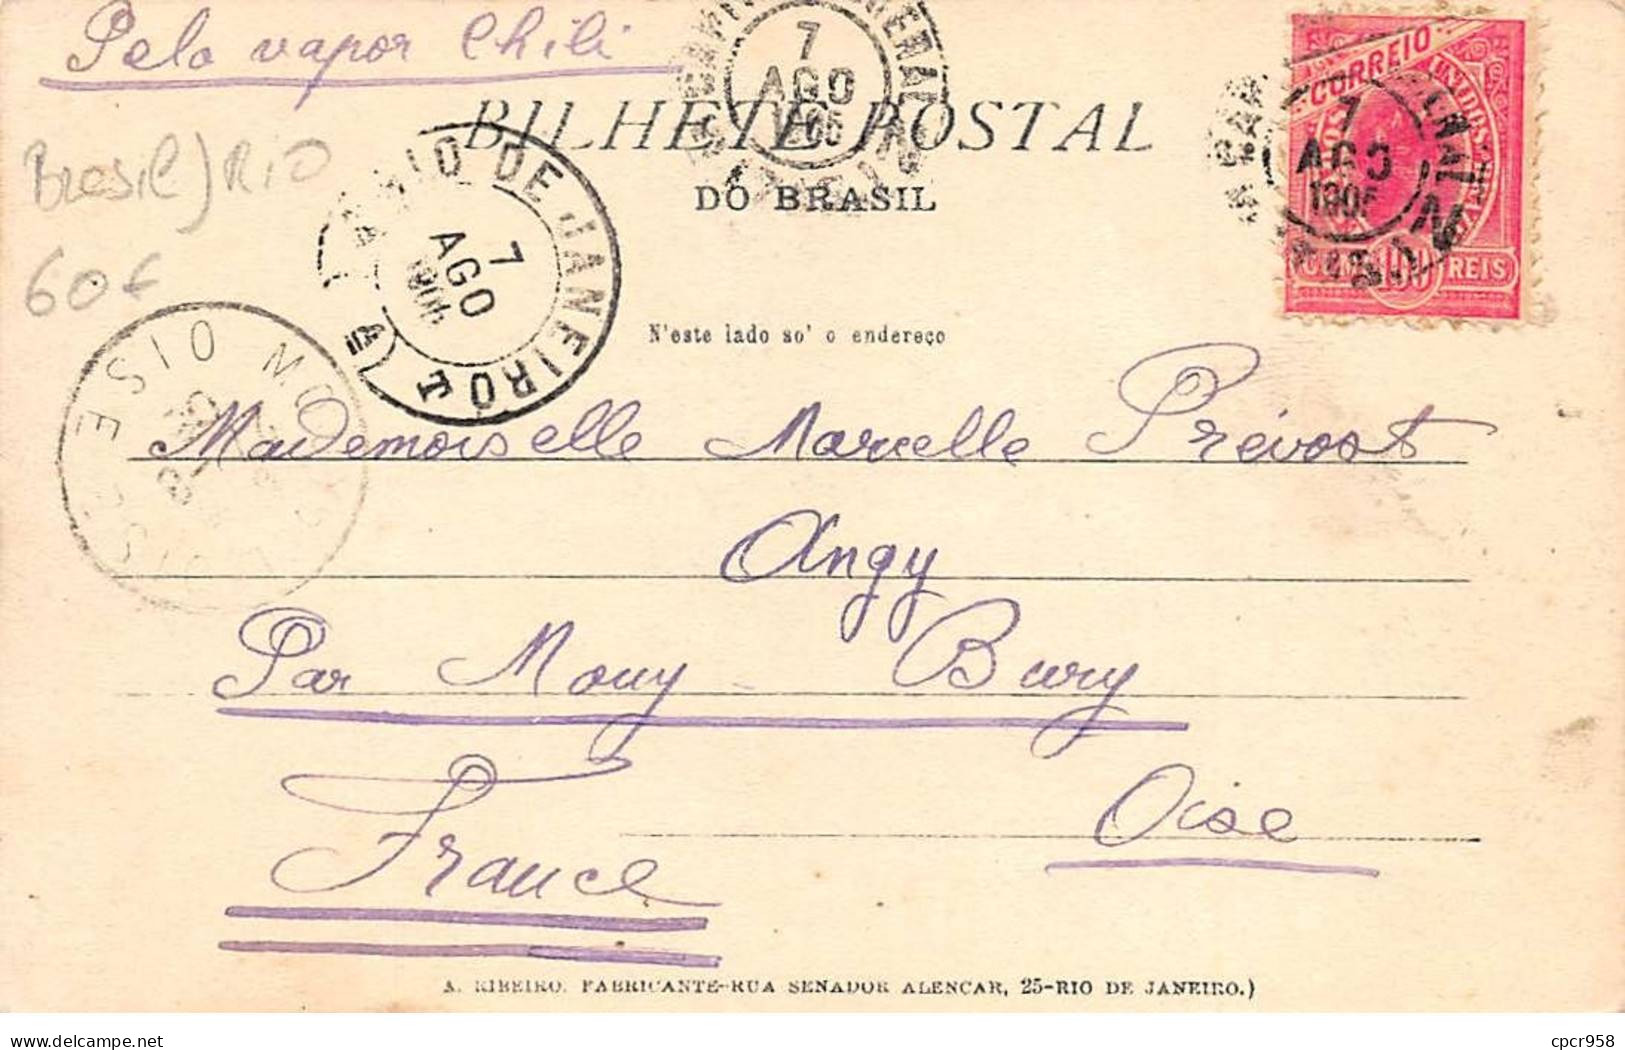 Pelo vapor Chili
BILHETE POSTAL
DO BRASIL
Bresil) RIO
60€
7
AGO
RIO DE JANEIRO
7
AGO
CORREIO
7
AGO
100 REIS
OISE
N'este lado so' o endereço
Mademoiselle Marcelle Prévost
Angy
Par Mouy Bury
Oise
France
A. RIBEIRO. FABRICANTE-RUA SENADOR ALENCAR, 25-RIO DE JANEIRO.)
www.delcampe.net
cpcr958